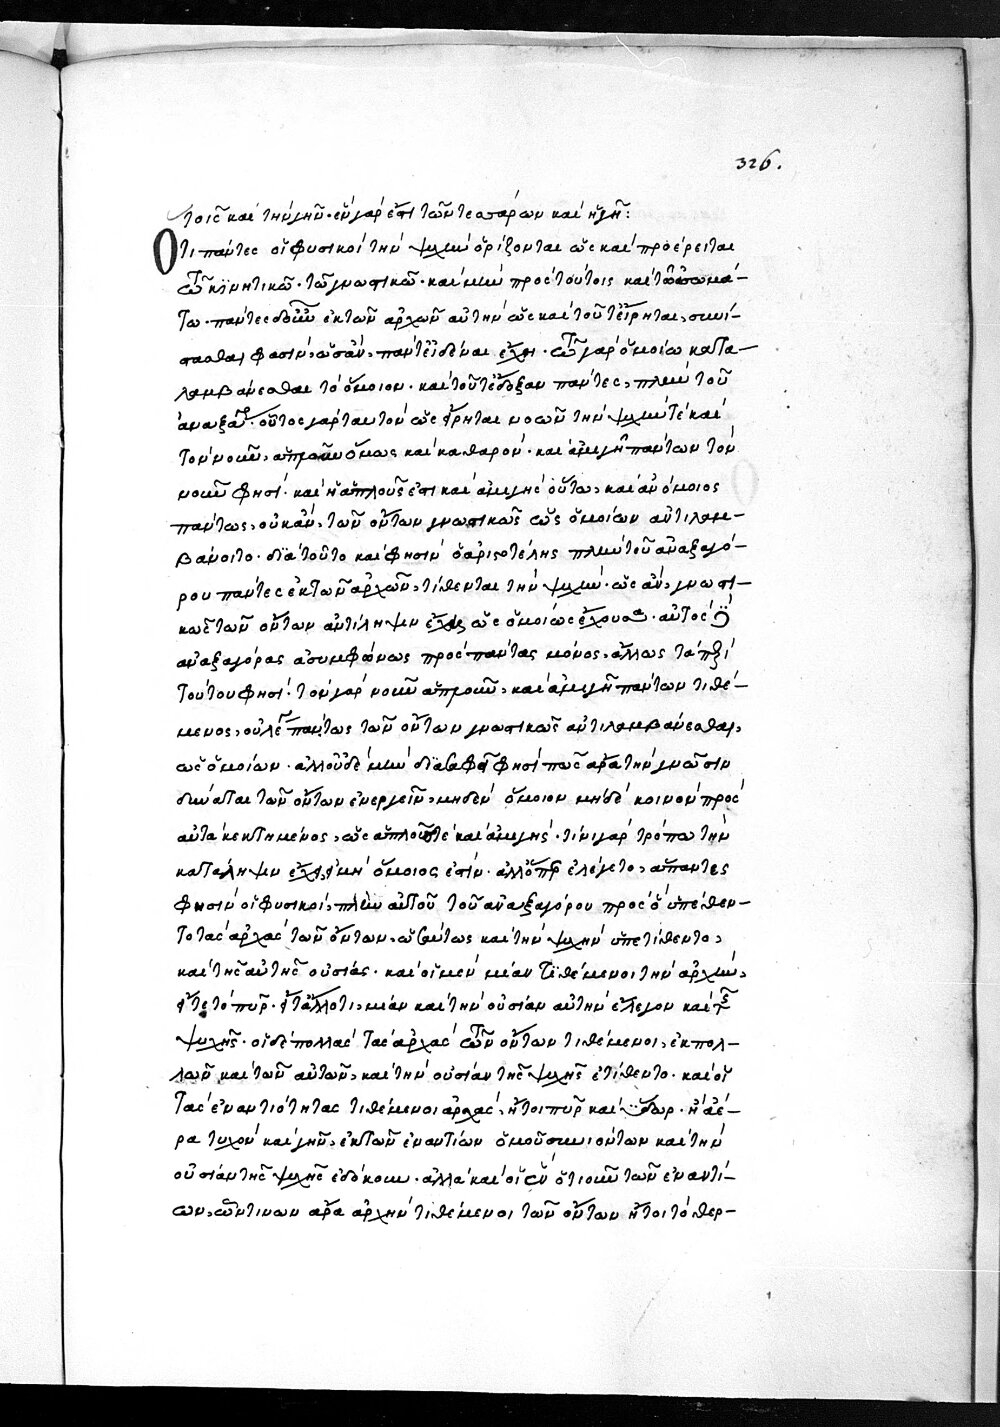 326.
τοις καὶ τὴν γῆν· ἓν γάρ ἐστι τῶν τεσσάρων καὶ ἡ γῆ:
Ὅτι πάντες οἱ φυσικοὶ τὴν ψυχὴν ὁρίζονται ὡς καὶ προείρηται
τῷ κινητικῷ· τῷ γνωστικῷ· καὶ μὴν πρὸς τούτοις καὶ τῷ ἀσωμά-
τῳ· πάντες δ' οὖν ἐκ τῶν ἀρχῶν αὐτὴν ὡς καὶ τοῦτ' εἴρηται, συνί-
στασθαι φασὶν, ὡς ἂν, πάντ' εἰδέναι ἔχῃ· τῷ γὰρ ὁμοίῳ κατα-
λαμβάνεσθαι τὸ ὅμοιον· καὶ τοῦτ' ἔδοξαν πάντες, πλὴν τοῦ
ἀναξαγόρου· οὗτος γὰρ ταυτὸν ὡς εἴρηται νοῶν τὴν ψυχήν τε καὶ
τὸν νοῦν, ἁπλοῦν ὅμως καὶ καθαρὸν· καὶ ἀμιγῆ πάντων τὸν
νοῦν φησί· καὶ ᾗ ἁπλοῦς ἐστι καὶ ἀμιγὴς οὕτω, καὶ ἀνόμοιος
πάντως, οὐκ ἂν, τῶν ὄντων γνωστικῶς ὡς ὁμοίων ἀντιλαμ-
βάνοιτο· διὰ τοῦτο καὶ φησὶν ὁ ἀριστοτέλης πλὴν τοῦ ἀναξαγό-
ρου πάντες ἐκ τῶν ἀρχῶν, τίθενται τὴν ψυχήν· ὡς ἂν, γνωστι-
κῶς τῶν ὄντων ἀντίληψιν ἔχῃ ὡς ὁμοίως ἔχουσα· αὐτὸς
ἀναξαγόρας ἀσυμφώνως πρὸς πάντας μόνος, ἄλλως τὰ περὶ
τούτου φησί· τὸν γὰρ νοῦν ἁπλοῦν, καὶ ἀμιγῆ πάντων τιθέ-
μενος, οὐ λέγει πάντως τῶν ὄντων γνωστικῶς ἀντιλαμβάνεσθαι,
ὡς ὁμοίων· ἀλλ' οὐδὲ μὴν διασαφεῖ φησὶ πῶς ἄρα τὴν γνῶσιν
δύναται τῶν ὄντων ἐνεργεῖν, μηδὲν ὅμοιον μηδὲ κοινὸν πρὸς
αὐτὰ κεκτημένος, ὡς ἁπλοῦς τε καὶ ἀμιγής· τίνι γὰρ τρόπῳ τὴν
κατάληψιν ἔχει, εἰ μὴ ὅμοιος ἐστίν· ἀλλ' ὅπερ ἐλέγετο, ἅπαντες
φησὶν οἱ φυσικοὶ, πλὴν αὐτοῦ τοῦ ἀναξαγόρου πρὸς ὃ ὑπέθεν-
το τὰς ἀρχὰς τῶν ὄντων, ὡσαύτως καὶ τὴν ψυχὴν ὑπετίθεντο,
καὶ τῆς αὐτῆς οὐσίας· καὶ οἱ μὲν μίαν τιθέμενοι τὴν ἀρχὴν,
εἴτε τὸ πῦρ· εἴτ' ἄλλο τι, μίαν καὶ τὴν οὐσίαν αὐτὴν ἔλεγον καὶ τῆς
ψυχῆς· οἱ δὲ πολλὰς τὰς ἀρχὰς τῶν ὄντων τιθέμενοι, ἐκ πολ-
λῶν καὶ τῶν αὐτῶν, καὶ τὴν οὐσίαν τῆς ψυχῆς ἐτίθεντο· καὶ οἱ
τὰς ἐναντιότητας τιθέμενοι ἀρχὰς, ἤτοι πῦρ καὶ ὕδωρ· ἢ ἀέ-
ρα τυχὸν καὶ γῆν, ἐκ τῶν ἐναντίων ὁμοῦ συνιόντων καὶ τὴν
οὐσίαν τῆς ψυχῆς ἐδόκουν· ἀλλὰ καὶ οἱ ἓν ὁτιοῦν τῶν ἐναντί-
ων, ὧντινων ἄρα ἀρχὴν τιθέμενοι τῶν ὄντων ἤτοι τὸ θερ-